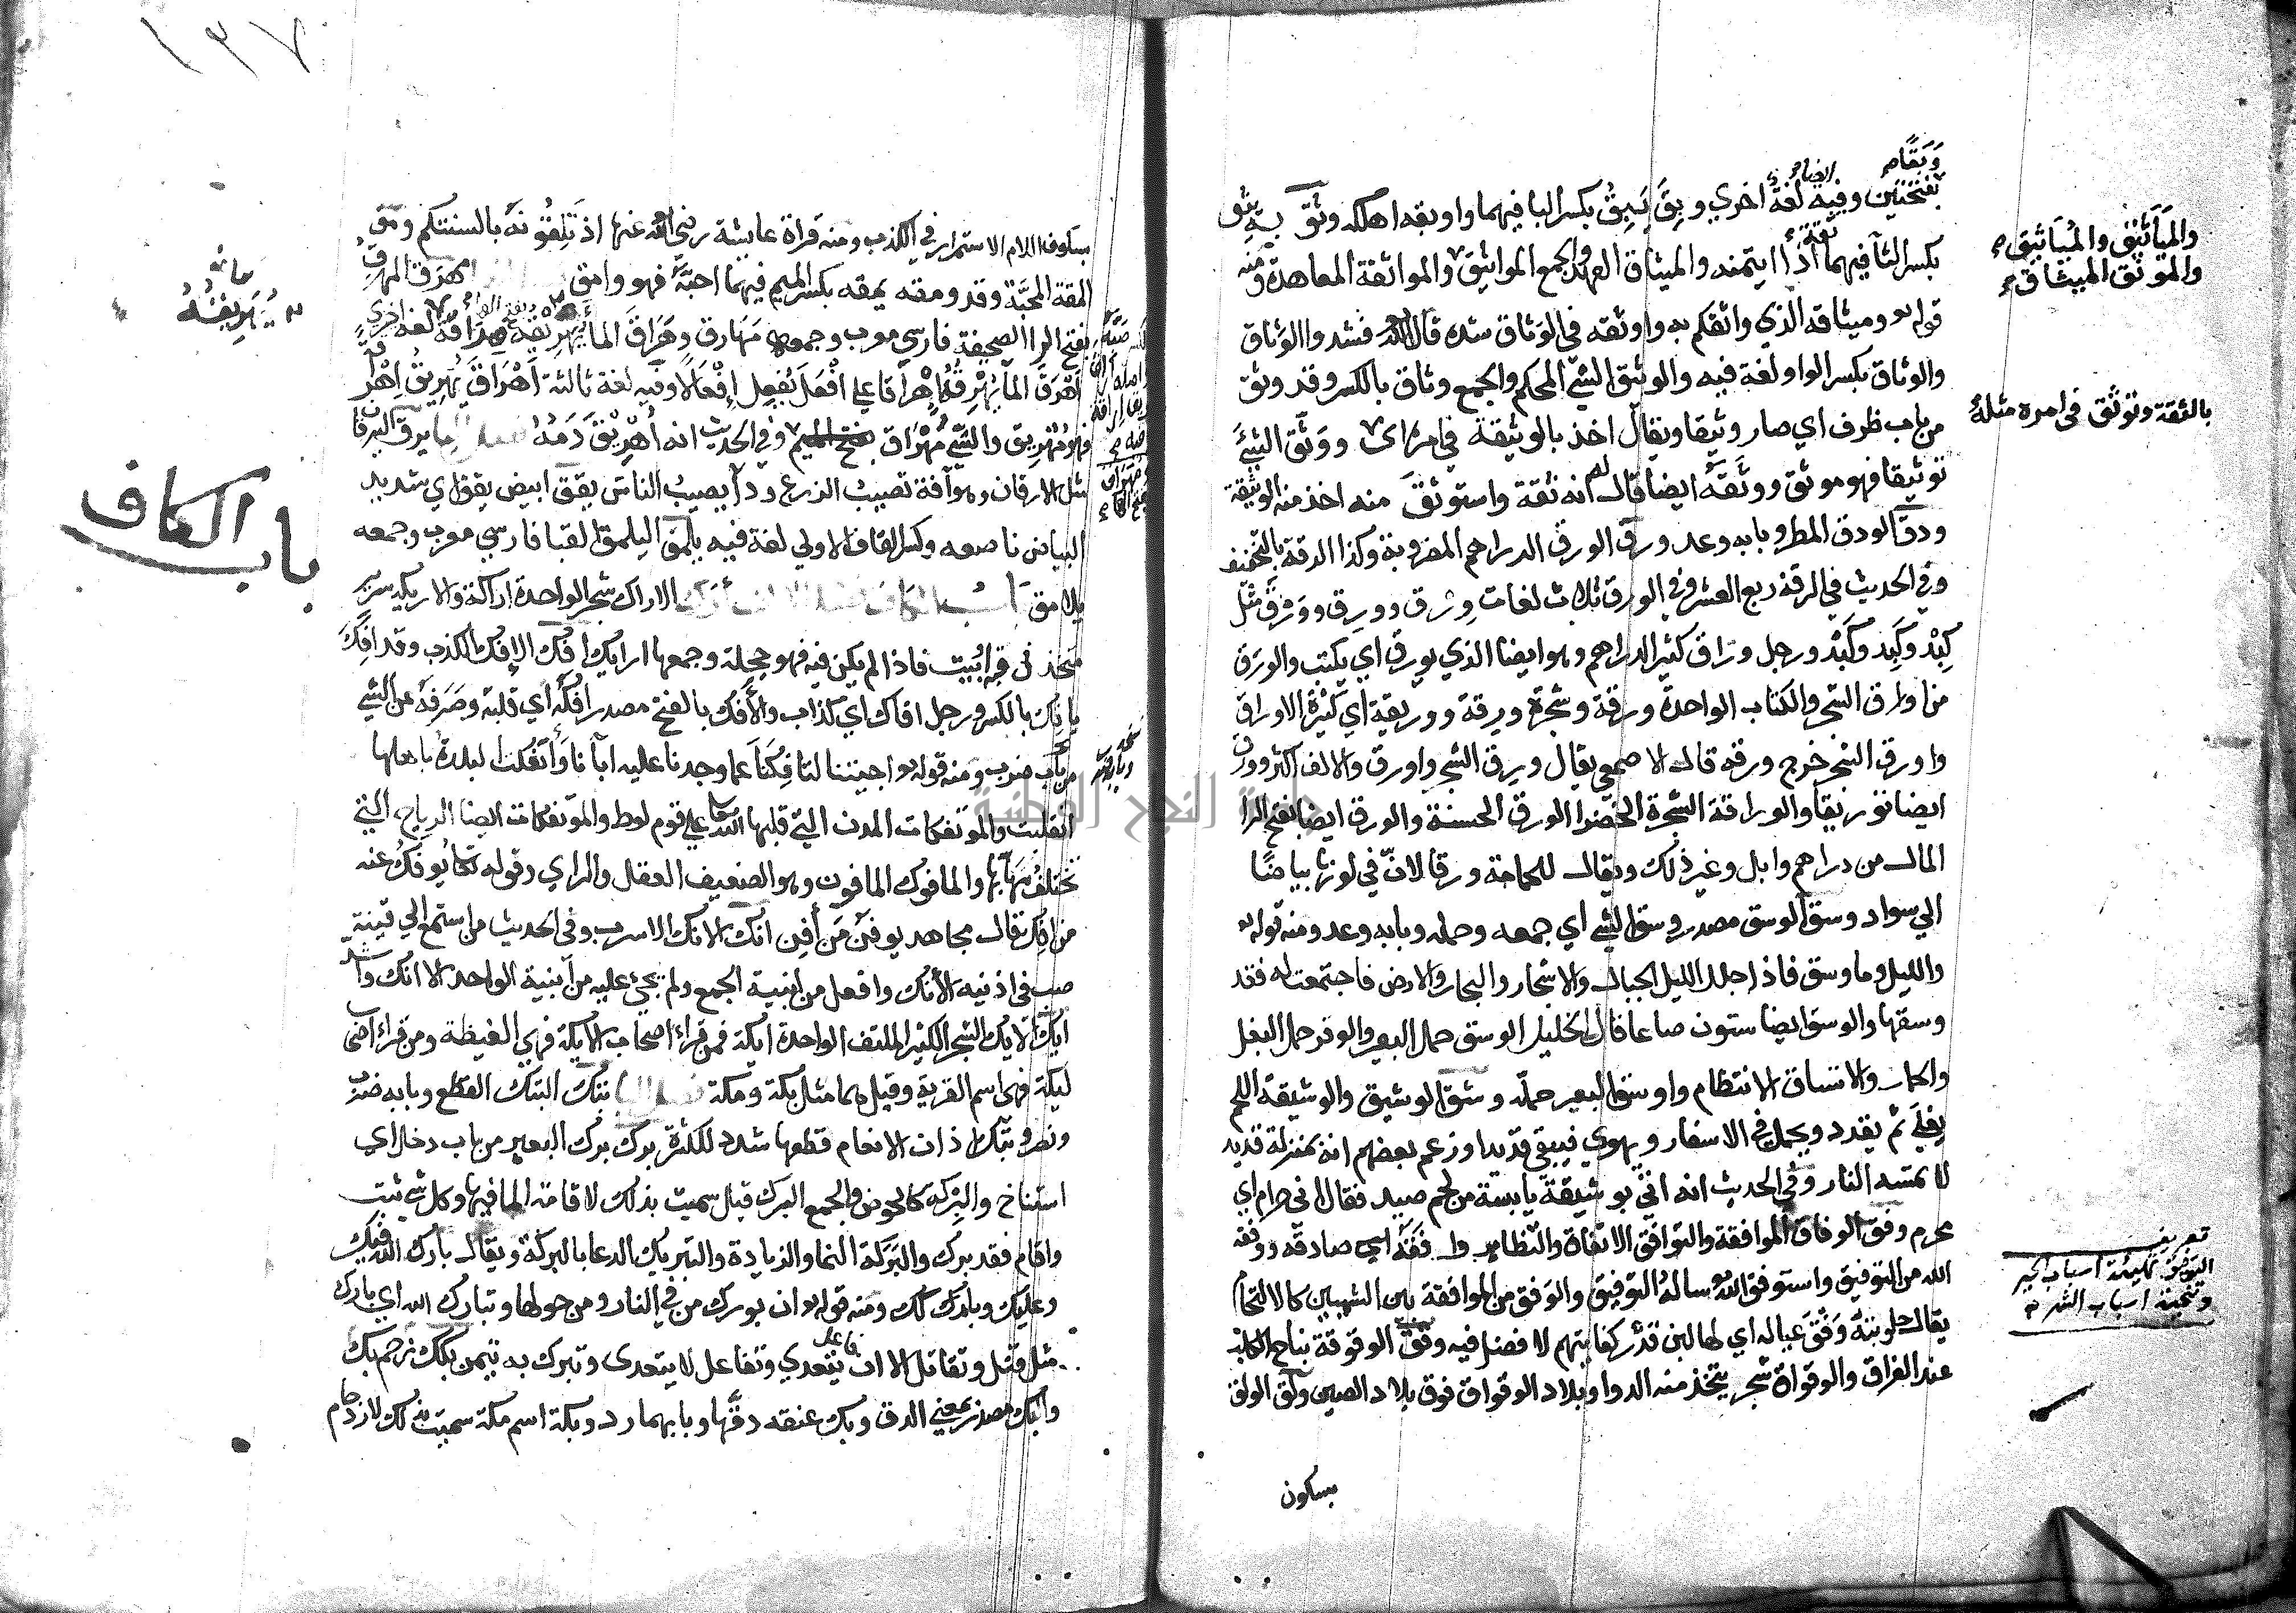 وَبَقًا م
بفتحتين وفيه لغة اخري وبِقَ يَبِقُ بكسر البا فيهما واوبقه اهلكه وثق به يثق
والمَيَاثِق والمَيَاثِيق م
والموثق الميثاق م
بكسر الثآ فيهما ثقة اذا ايتمنه والميثاق العهد والجمع المواثيق والمواثقة المعاهدة ومنه
قوله تع وميثاقه الذي واثقكم به واوثقه في الوثاق شده قال الله تع فشدوا الوثاق
والوثاق بكسر الواو لغة فيه والوثيق الشي المحكم والجمع وثاق بالكسر وقد وثق
بالثقة وتوثق في امره مثله
من باب ظرف اي صار وثيقا ويقال اخذ بالوثيقة في امره اي ووثق الشئ
توثيقا فهو موثق ووثقه ايضا قال له انه ثقة واستوثق منه اخذ منه الوثيقة
ودق الودق المطر وبابه وعد ورق الورق الدراهم المضروبة وكذا الرقة بالتخفيف
وفي الحديث في الرقة ربع العشر وفي الورق ثلاث لغات وِرْق ووَرِق ووَرْق مثل
كِبْد وكَبِد وكَبْد ورجل وراق كثير الدراهم وهو ايضا الذي يورق اي يكتب والورق
من اوراق الشجر والكتاب الواحدة ورقة وشجرة ورقة ووريقة اي كثيرة الاوراق
واورق الشجر خرج ورقه قال الاصمعي يقال ورق الشجر واورق والالف اكثر وورق
ايضا توريقا والوراقة الشجرة الخضرا الورق الحسنة والورق ايضا بفتح الرا
المال من دراهم وابل وغير ذلك ويقال للحمامة ورقا لان في لونها بياضًا
الي سواد وسق الوسق مصدر وسق الشي اي جمعه وحمله وبابه وعد ومنه قوله تع
والليل وما وسق فاذا جلل الليل الجبال والاشجار والبحار والارض فاجتمعت له فقد
وسقها والوسق ايضا ستون صاعا قال الخليل الوسق حمل البعير والوقر حمل البغل
والحمار والاتساق الانتظام واوسق البعير حمله وشق الوشيق والوشيقة اللحم
يغلى ثم يقدد ويحمل في الاسفار ويهوي فيبقي قديدا وزعم بعضهم انه بمنزلة قديد
لا تمسه النار وفي الحديث انه اتي بوشيقة يابسة من لحم صيد فقال اني حرام اي
محرم وفق الوفاق الموافقة والتوافق الاتفاق والتظاهر ووافقه اي صادفه ووفقه
تعريف
التوفيق تهيئة اسباب الخير
وتنحية اسباب الشر م
الله من التوفيق واستوفق الله ساله التوفيق والوفق من الموافقة بين الشيئين كالالتحام
يقال حلوبته وفق عياله اي لها لبن قدر كفايتهم لا فضل فيه وقق الوقوقة نباح الكلب
عند الفراق والوقواق شجر يتخذ منه الدوا وبلاد الوقواق فوق بلاد الصين ولق الولق
بسكون
١٣٧
بسكون اللام الاستمرار في الكذب ومنه قراة عايشة رضي الله عنها اذ تَلِقُونَهُ بالسنتكم ومق
المقة المحبة وقد ومقه يمقه بكسر الميم فيهما احبه فهو وامق هرق المهرق
بفتح الرا الصحيفة فارسي معرب وجمعه مهارق وهراق الما يهريقه هراقة لغة اخري
مائه
يُهَرِيقُهُ
اهرق الما يُهْرِقُهُ اهراقا علي افعل يفعل افعالا وفيه لغة ثالثة اهراق يهريق
فهو مهريق والشئ مهراق وفي الحديث انه أُهريق دمه يرق اليرقان
مثل الارقان وهو آفة تصيب الزرع ودآ يصيب الناس يقق ابيض يقق اي شديد
البياض ناصعه وكسر القاف الاولي لغة فيه يلمق اليلمق القبا فارسي معرب وجمعه
باب الكاف
يلامق الاراك شجر الواحدة اراكة والاريكة سرير
متخذ في قبة او بيت فاذا لم يكن فيه فهو حجلة وجمعها ارايك افك الافك الكذب وقد افك
يافك بالكسر ورجل افاك اي كذاب والأفك بالفتح مصدر افكه اي قلبه وصرفه عن الشي
من باب ضرب ومنه قوله تع اجيتنا لتافكنا عما وجدنا عليه اباءنا وأتفكت البلدة باهلها
انقلبت والموتفكات المدن التي قلبها الله تعا علي قوم لوط والموتفكات ايضا الرياح التي
تختلف مهابها والمافوك المافون وهو الضعيف العقل والراي وقوله تعا يوفك عنه
من افك قال مجاهد يوفن من أفن انك الانك الاسرب وفي الحديث من استمع الي قينة
صب في اذنيه الأنك وافعل من ابنية الجمع ولم يجئ عليه من ابنية الواحد الا انك واشد
ايك الايك الشجر الكثير الملتف الواحدة ايكة فمن قرأ اصحاب الايكة فهي الغيظة ومن قرأ اصحاب
ليكة فهي اسم القرية وقيل هما مثل بكة ومكة بتك البتك القطع وبابه ضرب
ونصر وبتك اذان الانعام قطعها شدد للكثرة برك برك البعير من باب دخل اي
استناخ والبِركة كالحوض والجمع البرك قيل سميت بذلك لاقامة الما فيها وكل شي ثبت
واقام فقد برك والبَرَكة النما والزيادة والتبريك الدعا بالبركة ويقال بارك الله فيك
وعليك وبارك لك ومنه قوله تع ان بورك من في النار ومن حولها وتبارك الله اي بارك
مثل قاتل وتقاتل الا ان فاعل يتعدي وتفاعل لا يتعدي وتبرك به تيمن بكك زحم بك
والبك مصدر بمعني الدق وبك عنقه دقها وبابهما رد وبكة اسم مكة سميت بذلك لازدحام
جامعة النجاح الوطنية